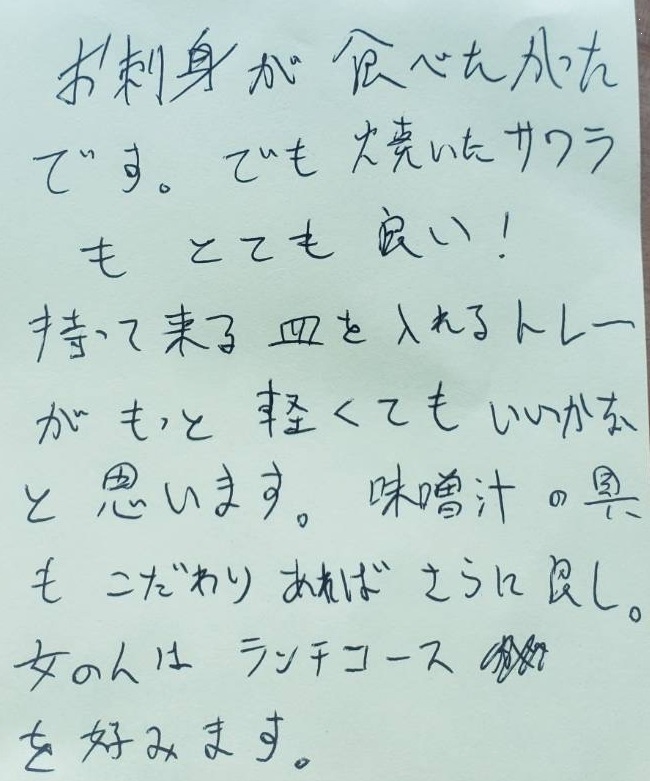 お刺身が食べたかった
です。でも焼いたサワラ
もとても良い！
持って来る皿を入れるトレー
がもっと軽くてもいいかな
と思います。味噌汁の具
もこだわりあればさらに良し。
女の人はランチコース
を好みます。